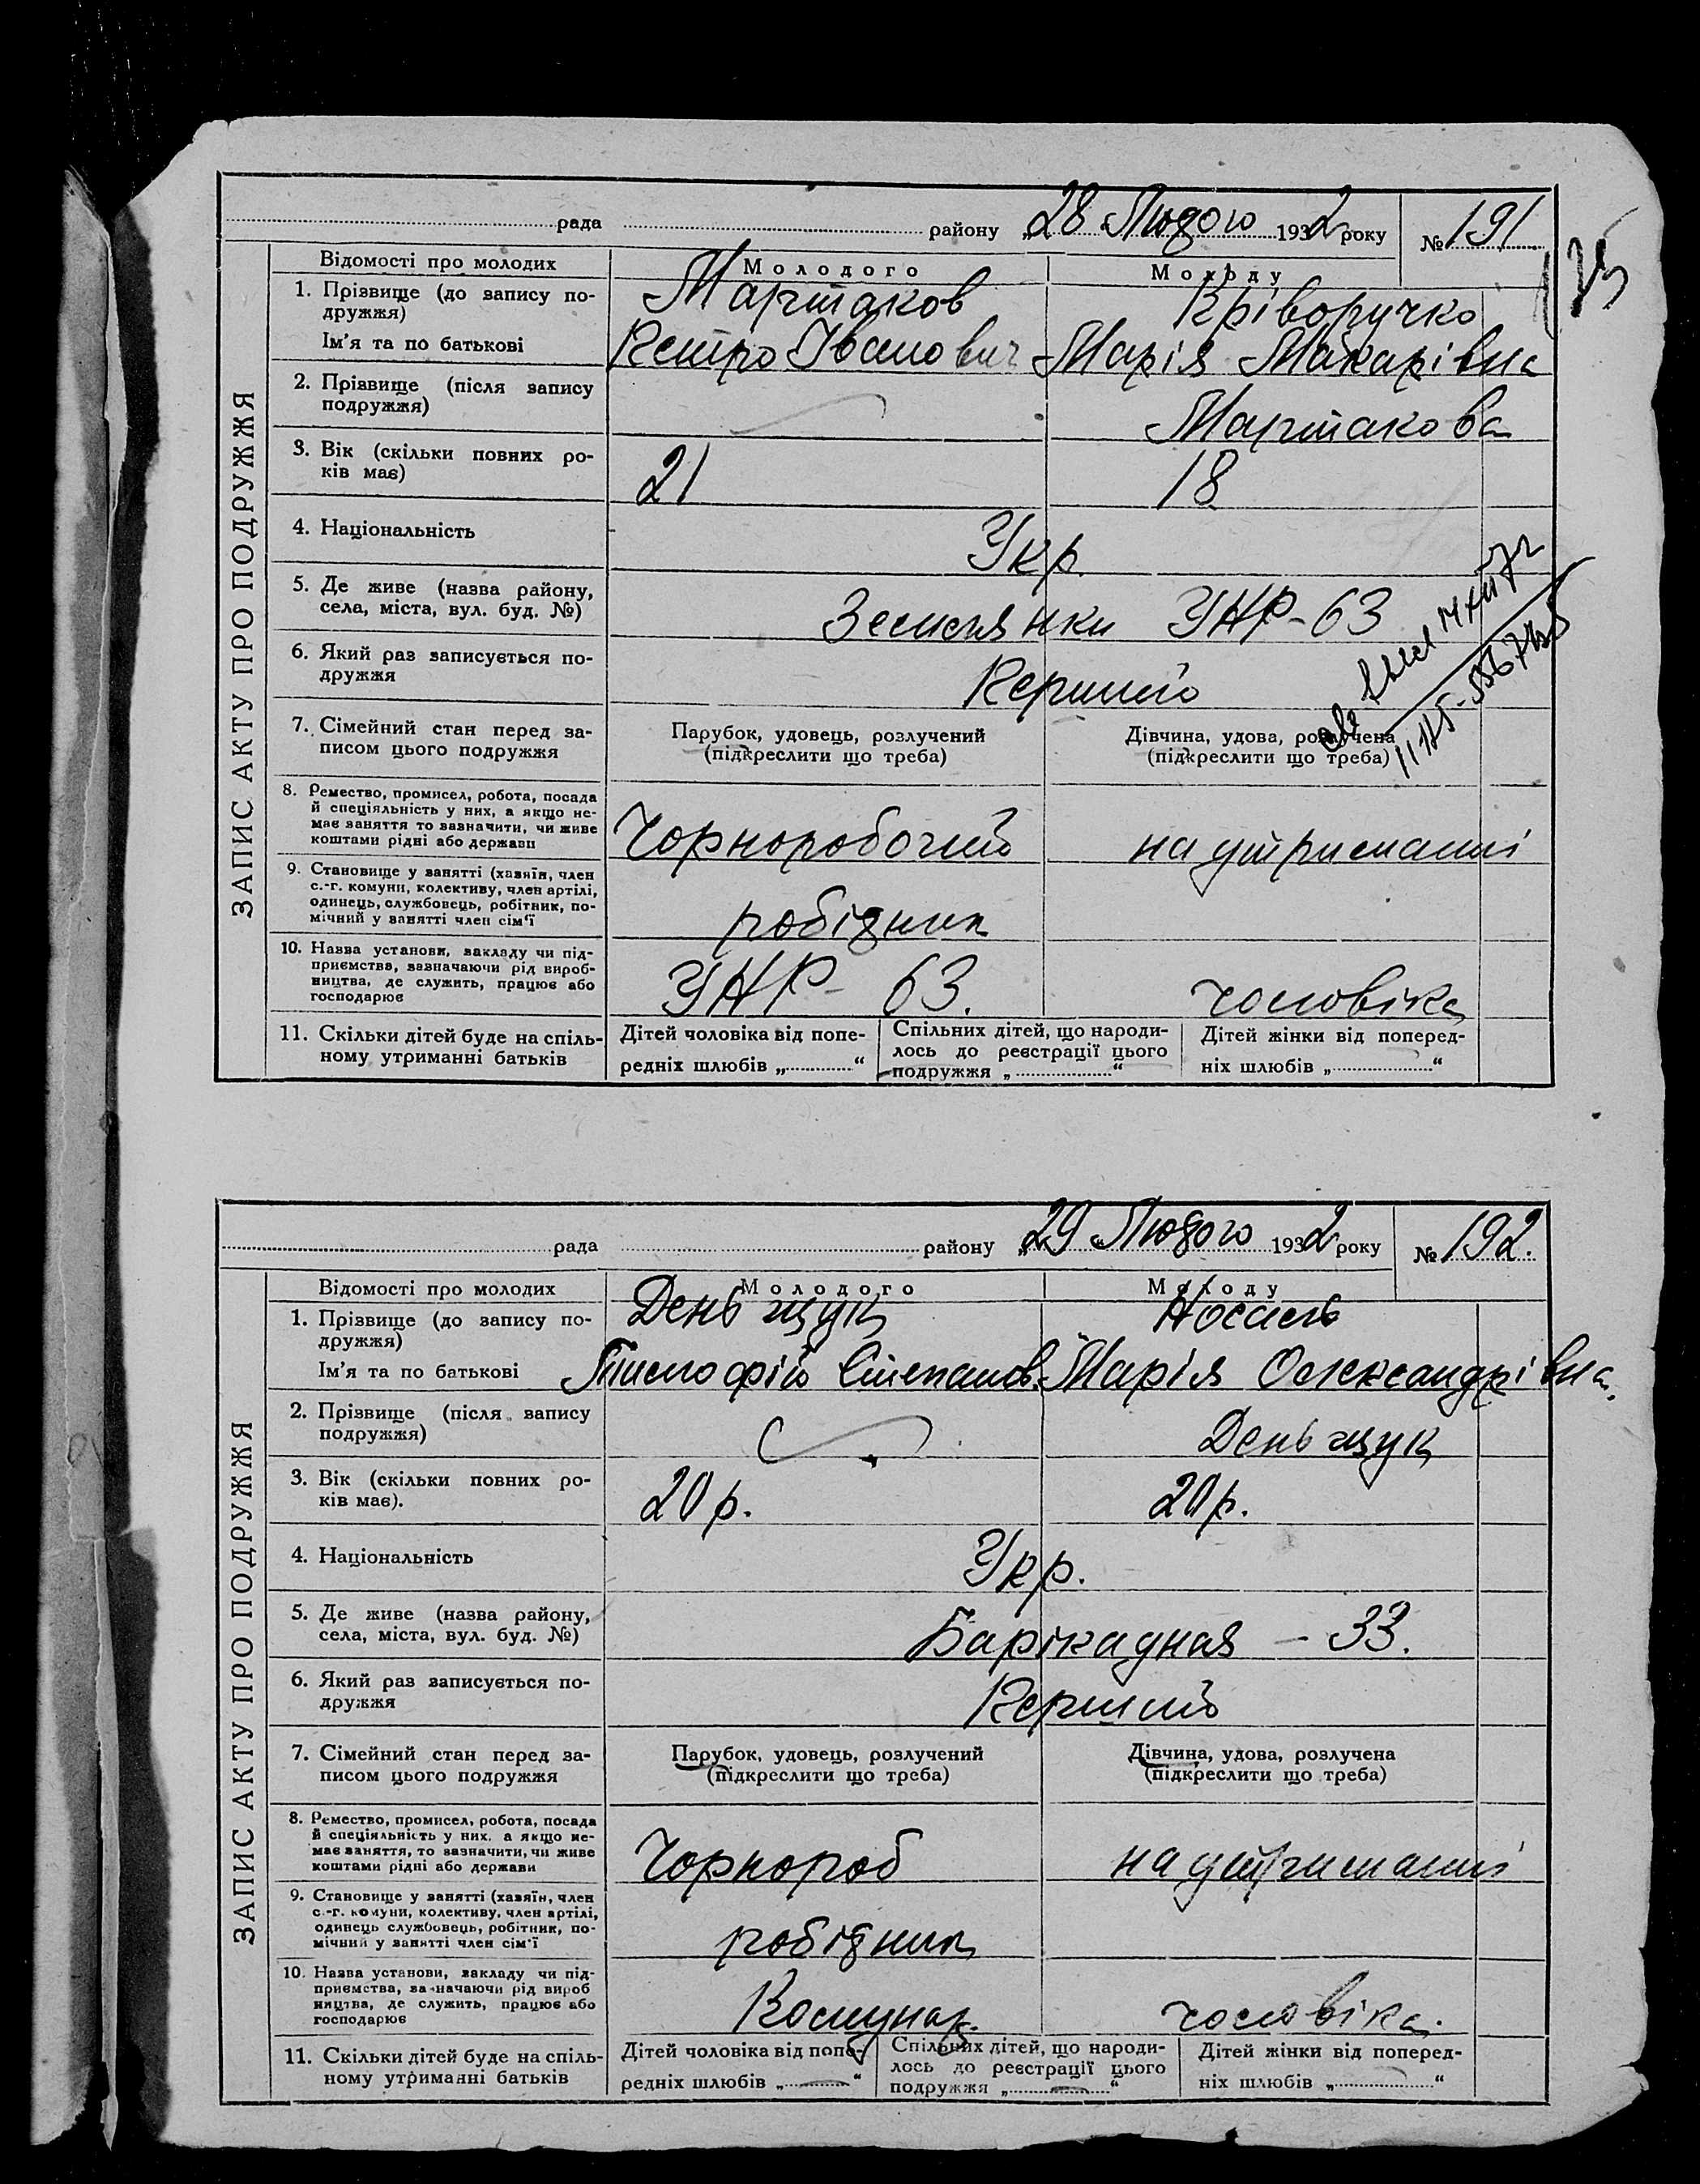 рада району „28 Лютого 1932 року № 191
125
ЗАПИС АКТУ ПРО ПОДРУЖЖЯ
Відомості про молодих Молодого Молоду
1. Прізвище (до запису по- Мартаков Кріворучко
дружжя)
Ім'я та по батькові Петро Іванович Марія Макарівна
2. Прізвище (після запису
подружжя) Мартакова
3. Вік (скільки повних ро-
ків має) 21 18
4. Національність Укр.
5. Де живе (назва району,
села, міста, вул. буд. №) Землянки УНР-63
6. Який раз записується по-
дружжя Перший
7. Сімейний стан перед за- Парубок, удовець, розлучений Дівчина, удова, розлучена
писом цього подружжя (підкреслити що треба) (підкреслити що треба)
8. Ремество, промисел, робота, посада
й спеціяльність у них, а якщо не-
має заняття то зазначити, чи живе
коштами рідні або держави Чорноробочий на утриманні
9. Становище у занятті (хазяїн, член
с.-г. комуни, колективу, член артілі,
одинець, службовець, робітник, по-
мічний у занятті член сім'ї робітник
10. Назва установи, закладу чи під-
приємства, зазначаючи рід вироб-
ництва, де служить, працює або
господарює УНР- 63. чоловіка
11. Скільки дітей буде на спіль- Дітей чоловіка від попе- Спільних дітей, що народи- Дітей жінки від поперед-
ному утриманні батьків редніх шлюбів „ “ лось до реєстрації цього ніх шлюбів „ “
подружжя „ “
рада району „29 Лютого 1932 року № 192.
ЗАПИС АКТУ ПРО ПОДРУЖЖЯ
Відомості про молодих Молодого Молоду
1. Прізвище (до запису по- Деньщук Носаль
дружжя)
Ім'я та по батькові Тимофій Степанов. Марія Олександрівна.
2. Прізвище (після запису
подружжя) Деньщук
3. Вік (скільки повних ро-
ків має). 20 р. 20 р.
4. Національність Укр.
5. Де живе (назва району,
села, міста, вул. буд. №) Барікадная - 33.
6. Який раз записується по-
дружжя Перший
7. Сімейний стан перед за- Парубок, удовець, розлучений Дівчина, удова, розлучена
писом цього подружжя (підкреслити що треба) (підкреслити що треба)
8. Ремество, промисел, робота, посада
й спеціяльність у них, а якщо не-
має заняття, то зазначити, чи живе
коштами рідні або держави Чорнороб на утриманні
9. Становище у занятті (хазяїн, член
с.-г. комуни, колективу, член артілі,
одинець службовець, робітник, по-
мічний у занятті член сім'ї робітник
10. Назва установи, закладу чи під-
приємства, зазначаючи рід вироб
ництва, де служить, працює або
господарює Комунар. чоловіка.
11. Скільки дітей буде на спіль- Дітей чоловіка від попе- Спільних дітей, що народи- Дітей жінки від поперед-
ному утриманні батьків редніх шлюбів „ “ лось до реєстрації цього ніх шлюбів „ “
подружжя „ “